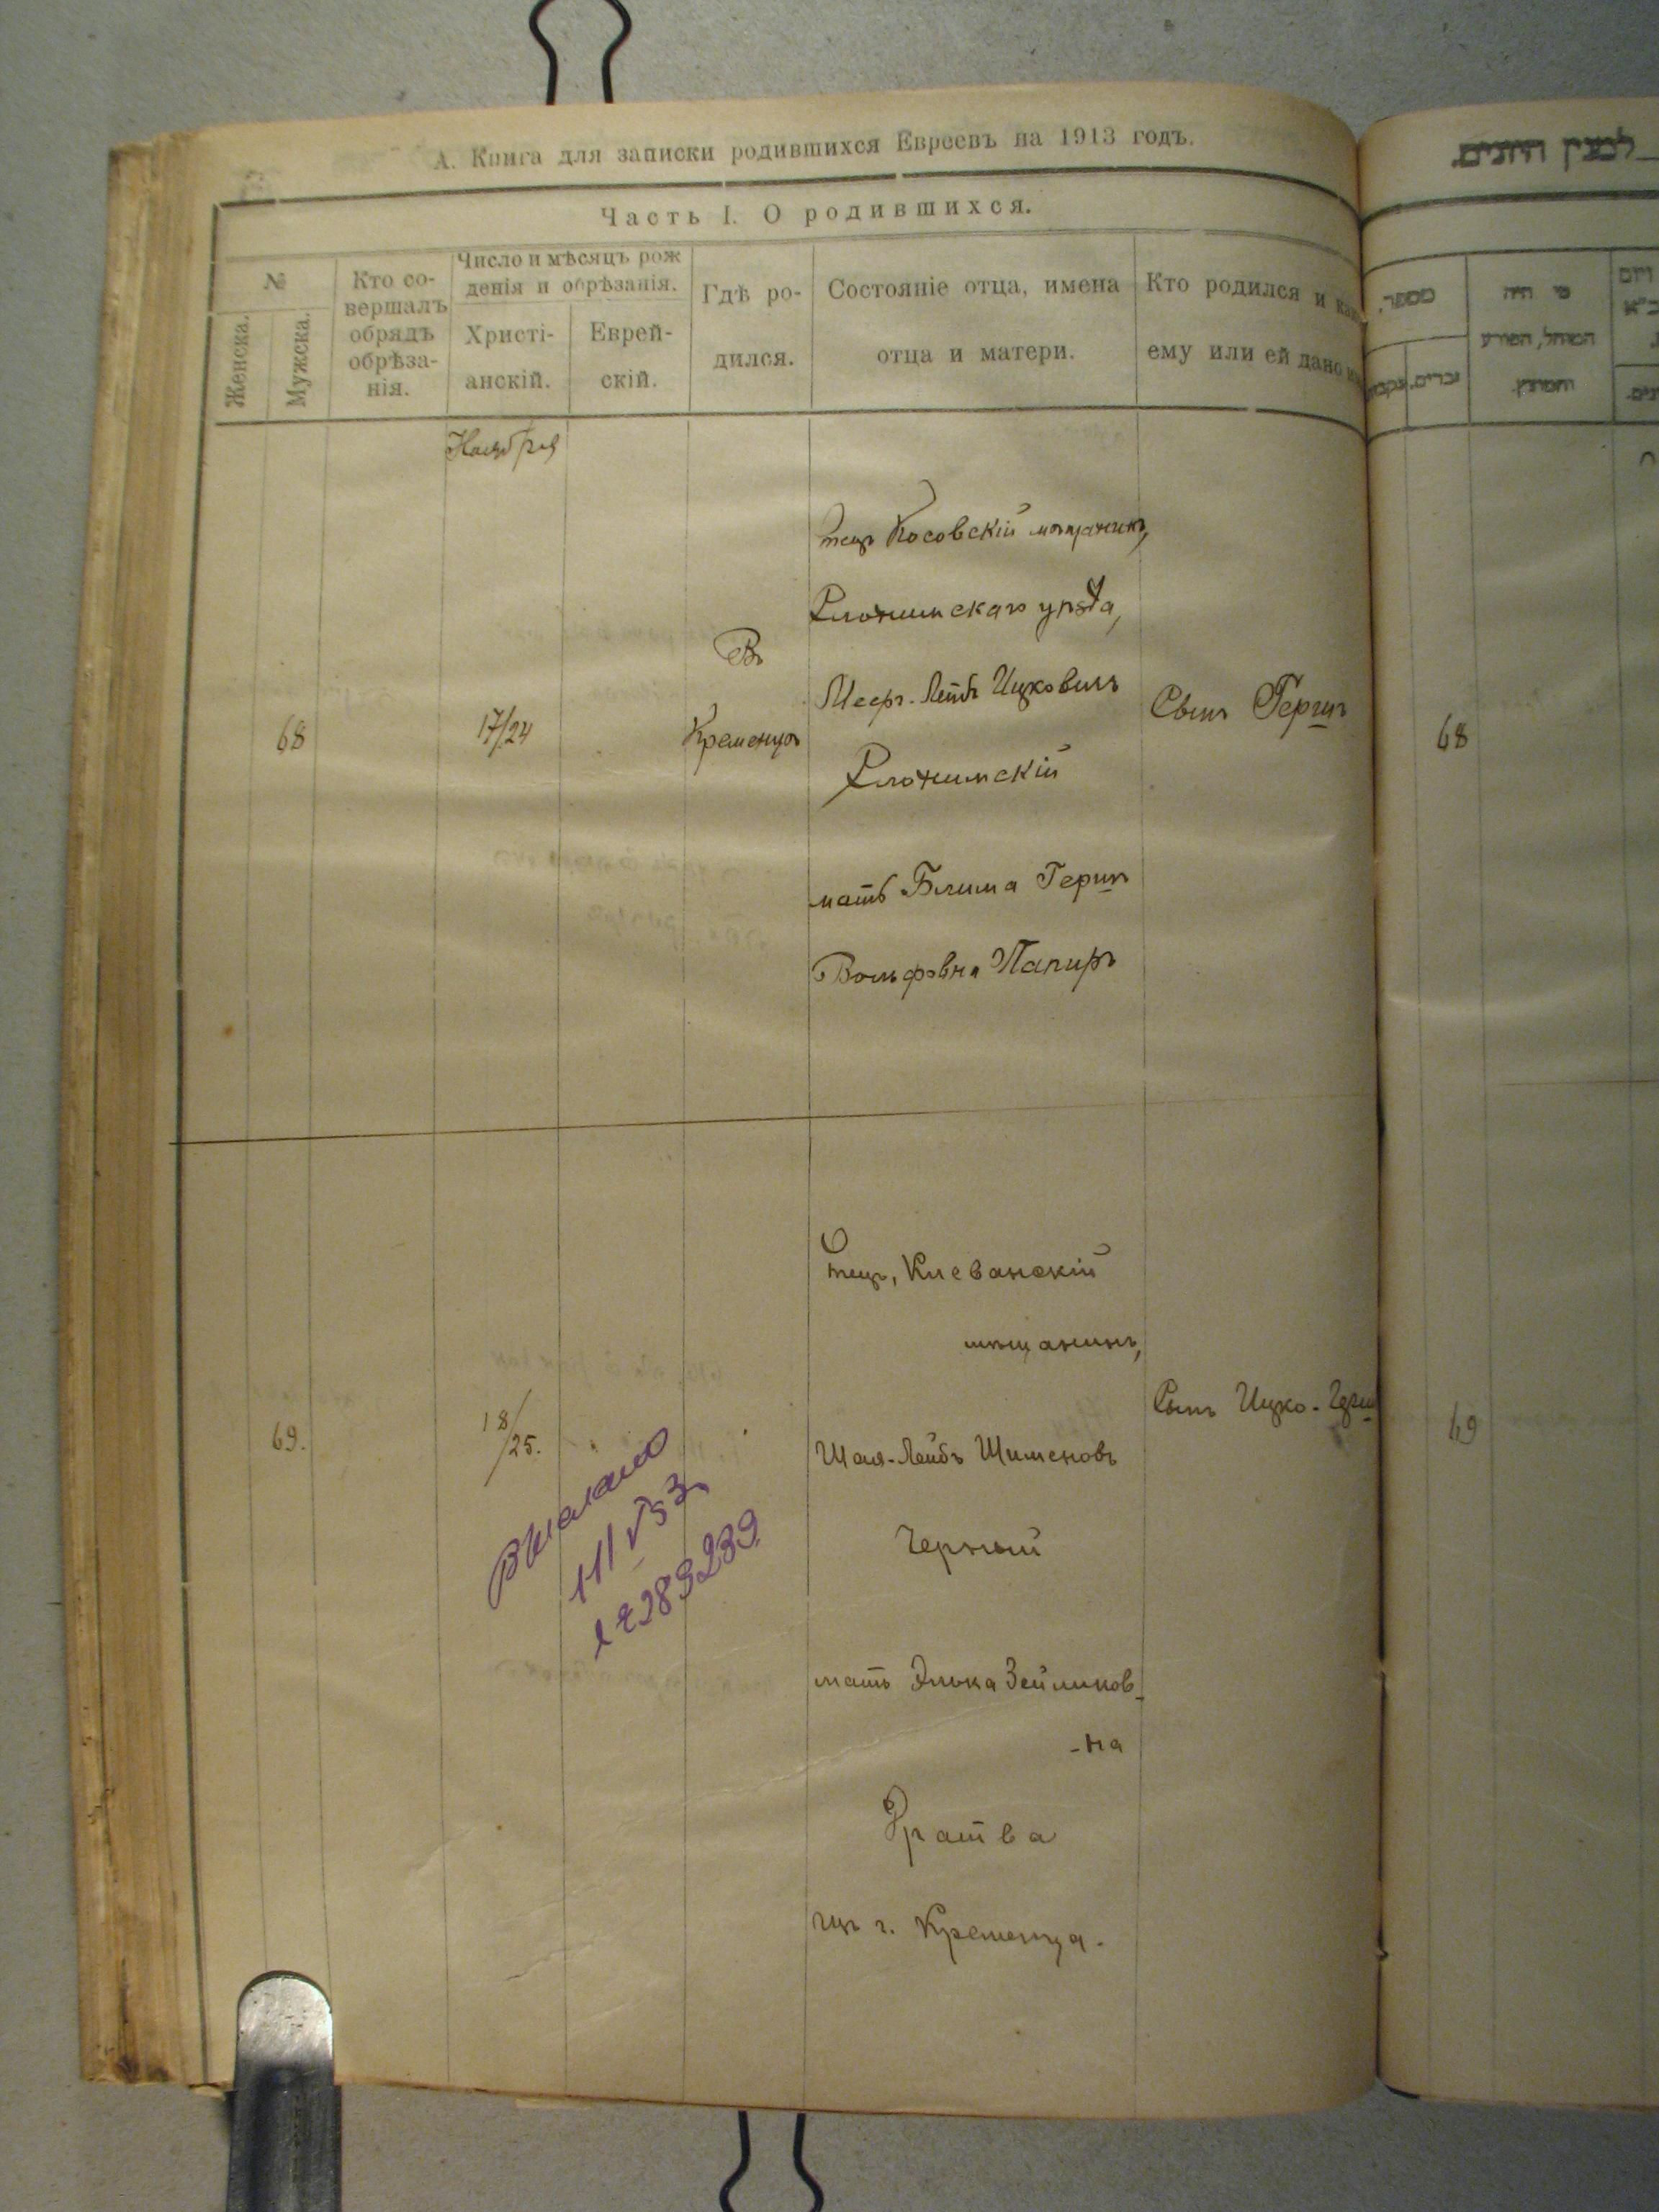 А. Книга для записки родившихся Евреевъ на 1913 годъ.
Часть I. О родившихся.
№
Женска.
Мужска.
Кто со-
вершалъ
обрядъ
обрѣза-
нія.
Число и мѣсяцъ рож
денія и обрѣзанія.
Христі-
анскій.
Еврей-
скій.
Гдѣ ро-
дился.
Состояніе отца, имена
отца и матери.
Кто родился и как
ему или ей дано
Ноября
68
17/24
Въ
Кременцѣ
Отецъ Косовскій мѣщанинъ,
Слонимскаго уѣзда,
Меер-Лейб Ицковичъ
Слонимскій
мать Блима Герш
Вольфовна Папиръ
Сынъ Гершъ
69.
18/25.
Отецъ, Клеванскій
мѣщанинъ,
Шая-Лейбъ Шименовъ
Черный
мать Элька Зейликов-
-на
изъ г. Кременца.
Сынъ Ицко-
Выдано
לכמנין היונים.
מספר.
זכרים.
מי היה
המוהל, הפורע
והמוצץ.
68
69